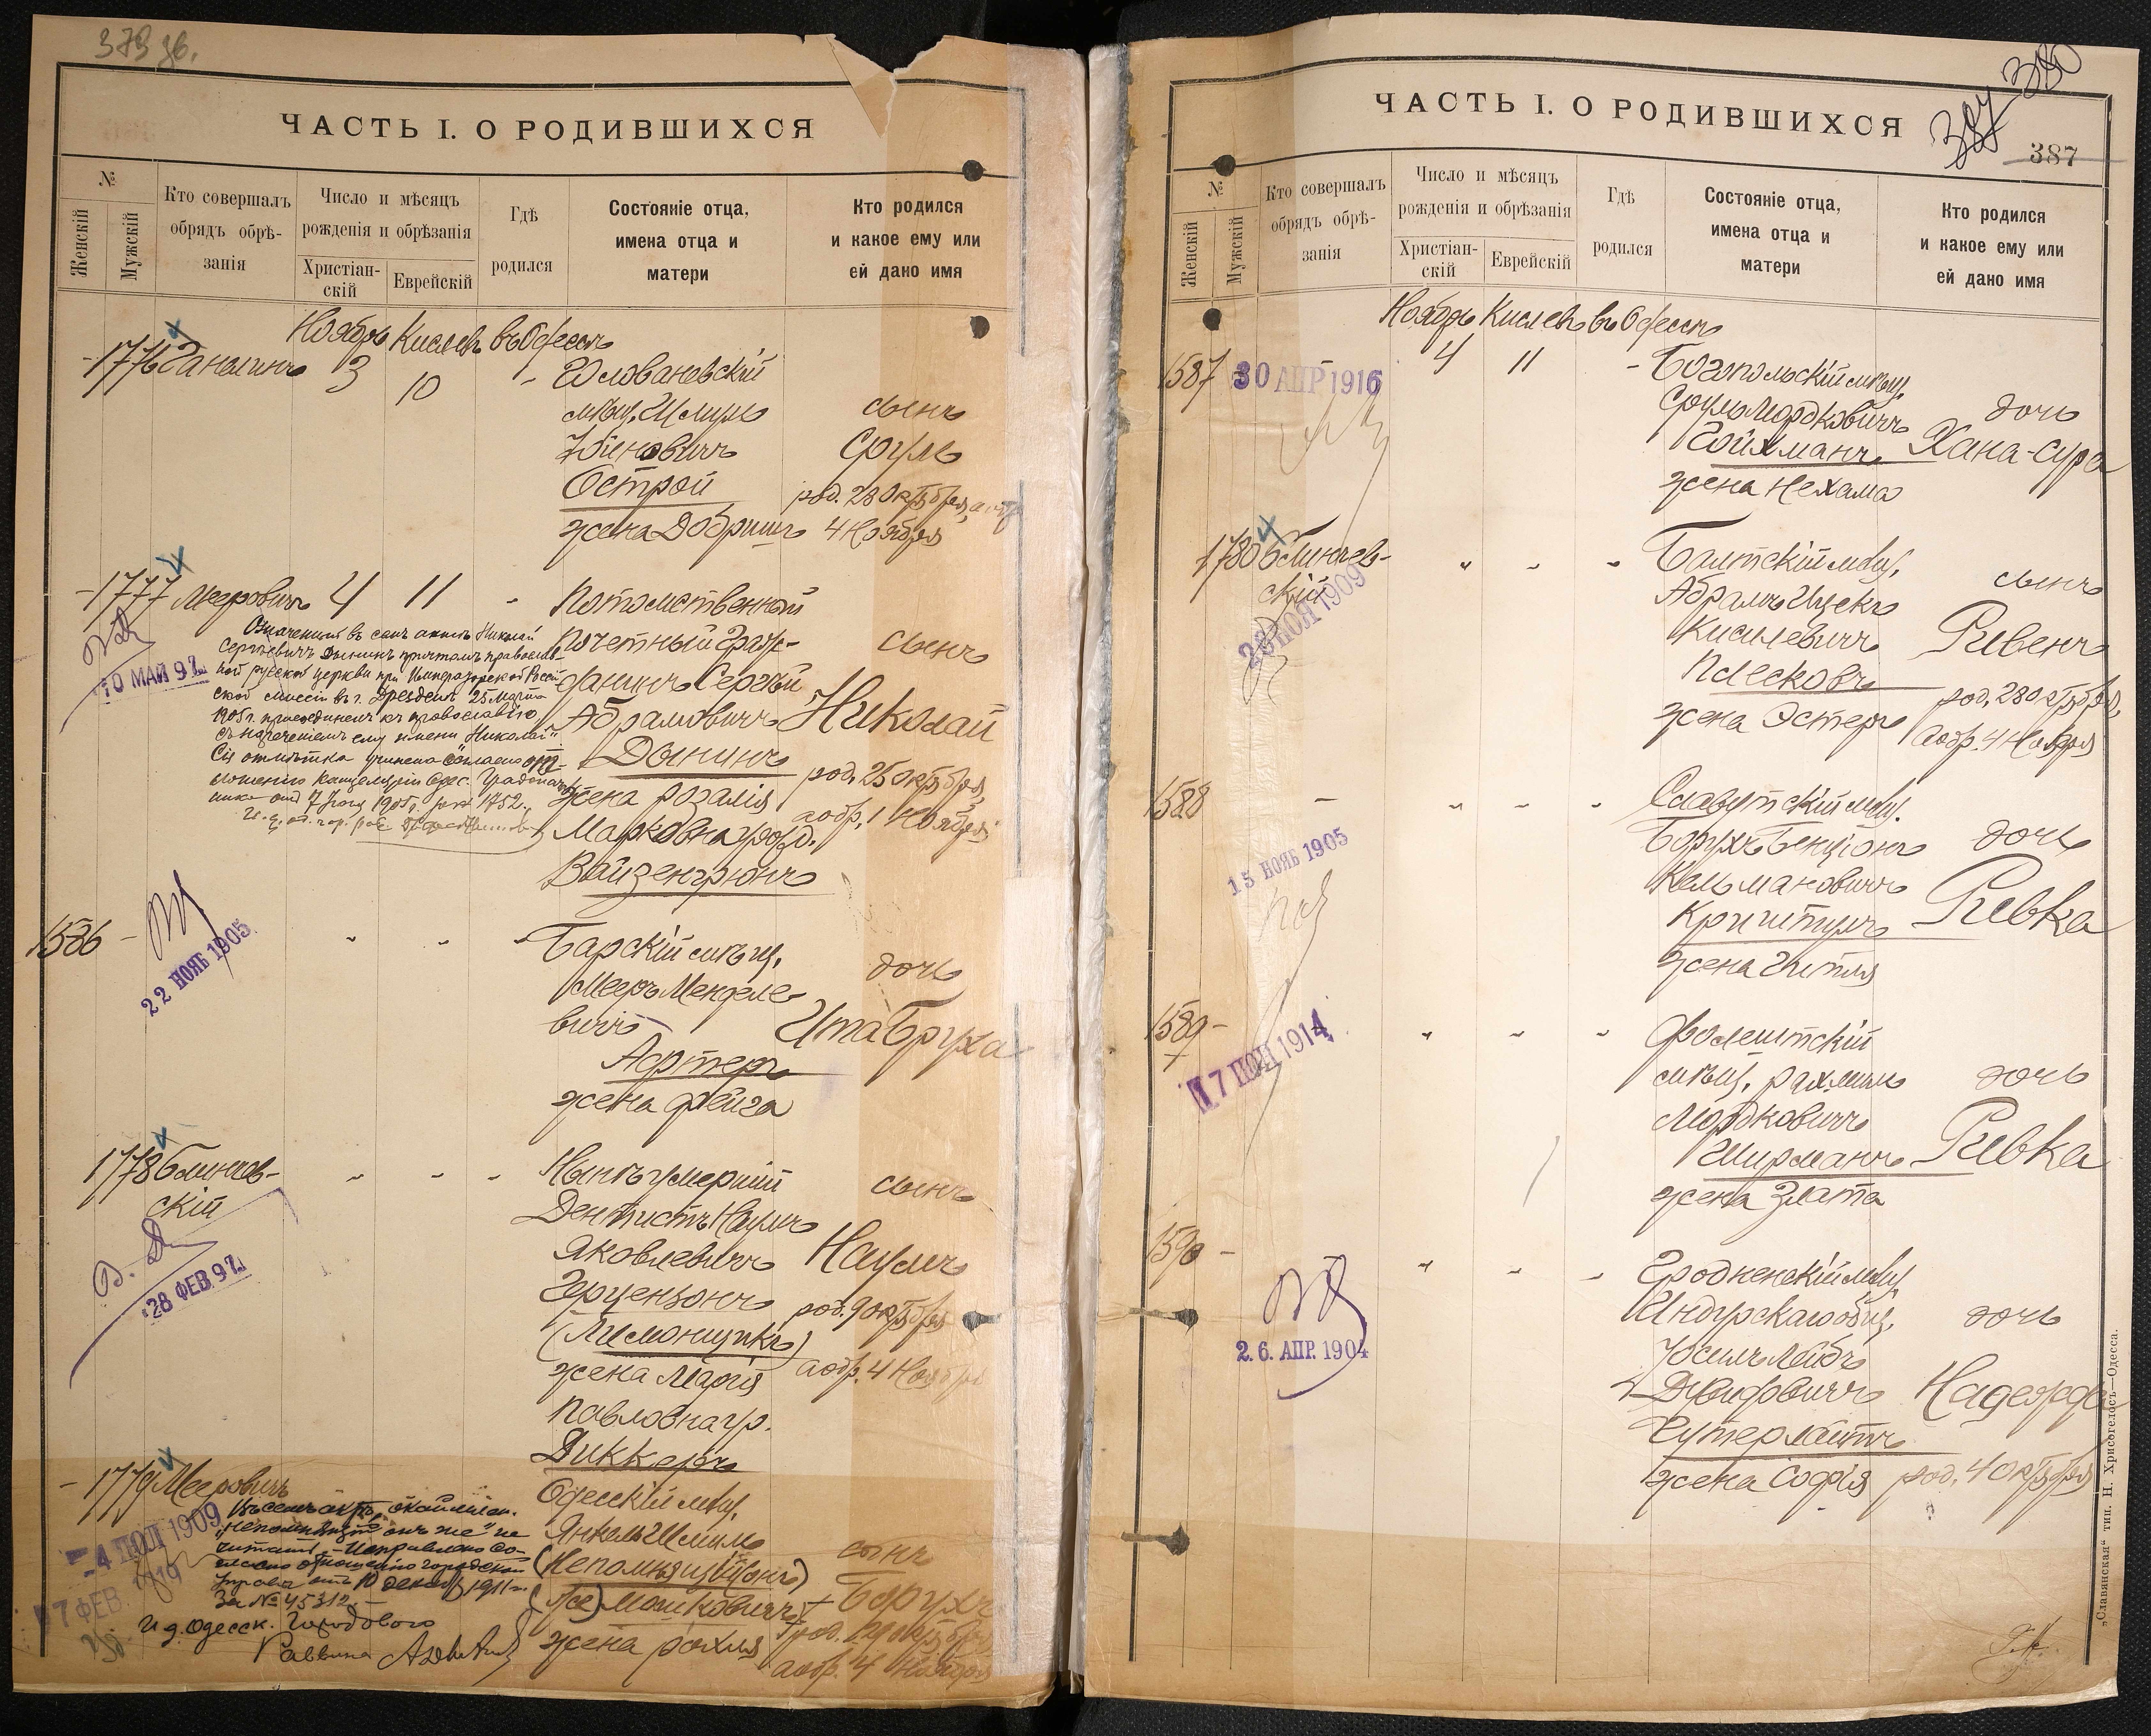 379 зв.
ЧАСТЬ I. О РОДИВШИХСЯ
№
Женскій
Мужскій
Кто совершалъ
обрядъ обрѣ-
занія
Число и мѣсяцъ
рожденія и обрѣзанія
Христіан-
скій
Еврейскій
Гдѣ
родился
Состояніе отца,
имена отца и
матери
Кто родился
и какое ему или
ей дано имя
Ноябрь Кислевъ въ Одессѣ
1776
3
10
Головановскій
мѣщ.
сынъ
Сруль
Острой
род. 28 Октября, а обр.
4 Ноября
1777 Мееровичъ 4 11
Потомственный
Почетный Граж-
данинъ Сергѣй
Абрамовичъ
Дынинъ
жена Розалія
Марковна урожд.
Вайзенгрюнъ
сынъ
Николай
род. 25 Октября,
а обр. 1 Ноября
Означенный въ семъ актѣ Николай
Сергѣевичъ Дынинъ причтомъ православ-
ной русской церкви при Императорской Россій-
ской миссіи въ г. Дрезденѣ 25 Марта
1905 г. присоединенъ къ православію
съ нареченіемъ ему имени "Николай".
Сія отмѣтка учинена согласно от-
ношенію Канцеляріи Одес. Градоначаль-
ника отъ 7 1905 г. за № 1752.
10 МАЙ 97
1586 -
22 НОЯБ 1905
Барскій мѣщ.
Мееръ Менделе-
вичъ
Артеръ
жена Фейга
дочь
Ита Бруха
1778 Блинчев-
скій
28 ФЕВ. 97
Нынѣ умершій
Дентистъ Наумъ
Яковлевичъ
Герцензонъ
(Лимонщикъ)
жена Марія
Павловна ур.
Диккеръ
сынъ
Наумъ
род. 9 Октября
а обр. 4 Ноября
1779 Мееровичъ
4 1909
7 ФЕВ. 1912
Въ семъ актѣ
"Непомнящій онъ же" не
читать. - Исправлено со-
гласно отношенію городской
Управы отъ 10 декаб. 1911 г.
За № 45312.
И. д. Одесск. Городового
Раввина
Одесскій мѣщ.
Янкель Шмиль
(Непомнящій онъ)
(же) Мошковичъ
жена Рахля
сынъ
Борухъ
а обр. 4 Ноября
380
ЧАСТЬ I. О РОДИВШИХСЯ
387
№
Женскій
Мужскій
Кто совершалъ
обрядъ обрѣ-
занія
Число и мѣсяцъ
рожденія и обрѣзанія
Христіан-
скій
Еврейскій
Гдѣ
родился
Состояніе отца,
имена отца и
матери
Кто родился
и какое ему или
ей дано имя
Ноябрь Кислевъ въ Одессѣ
1587
30 АПР 1916
4
11
Богопольскій мѣщ.
Сруль Мордковичъ
Гойхманъ
жена Нехама
дочь
Хана-Сура
1780 Блинчев-
скій
28 НОЯ 1909
Балтскій мѣщ.
Абрамъ Ицекъ
Кисилевичъ
Песковъ
жена Эстеръ
сынъ
Рувенъ
род. 28 Октября,
а обр. 4 Ноября
1588
15 НОЯБ 1905
Славутскій мѣщ.
Борухъ Бенціонъ
Кельмановичъ
Криштулъ
жена Гитля
дочь
Ривка
1589 -
17 1914
Фалештскій
мѣщ. Рахмиль
Мордковичъ
Ширманъ
жена Злата
дочь
Ривка
1590 -
2.6. АПР. 1904
Гродненскій мѣщ.
Индурскаго общ.
Юсилъ Лейбъ
Давидовичъ
Гутерлайтъ
жена Софія
дочь
Надежда
род. 4 Октября
„Славянская“ тип. Н. Хрисогелосъ—Одесса.